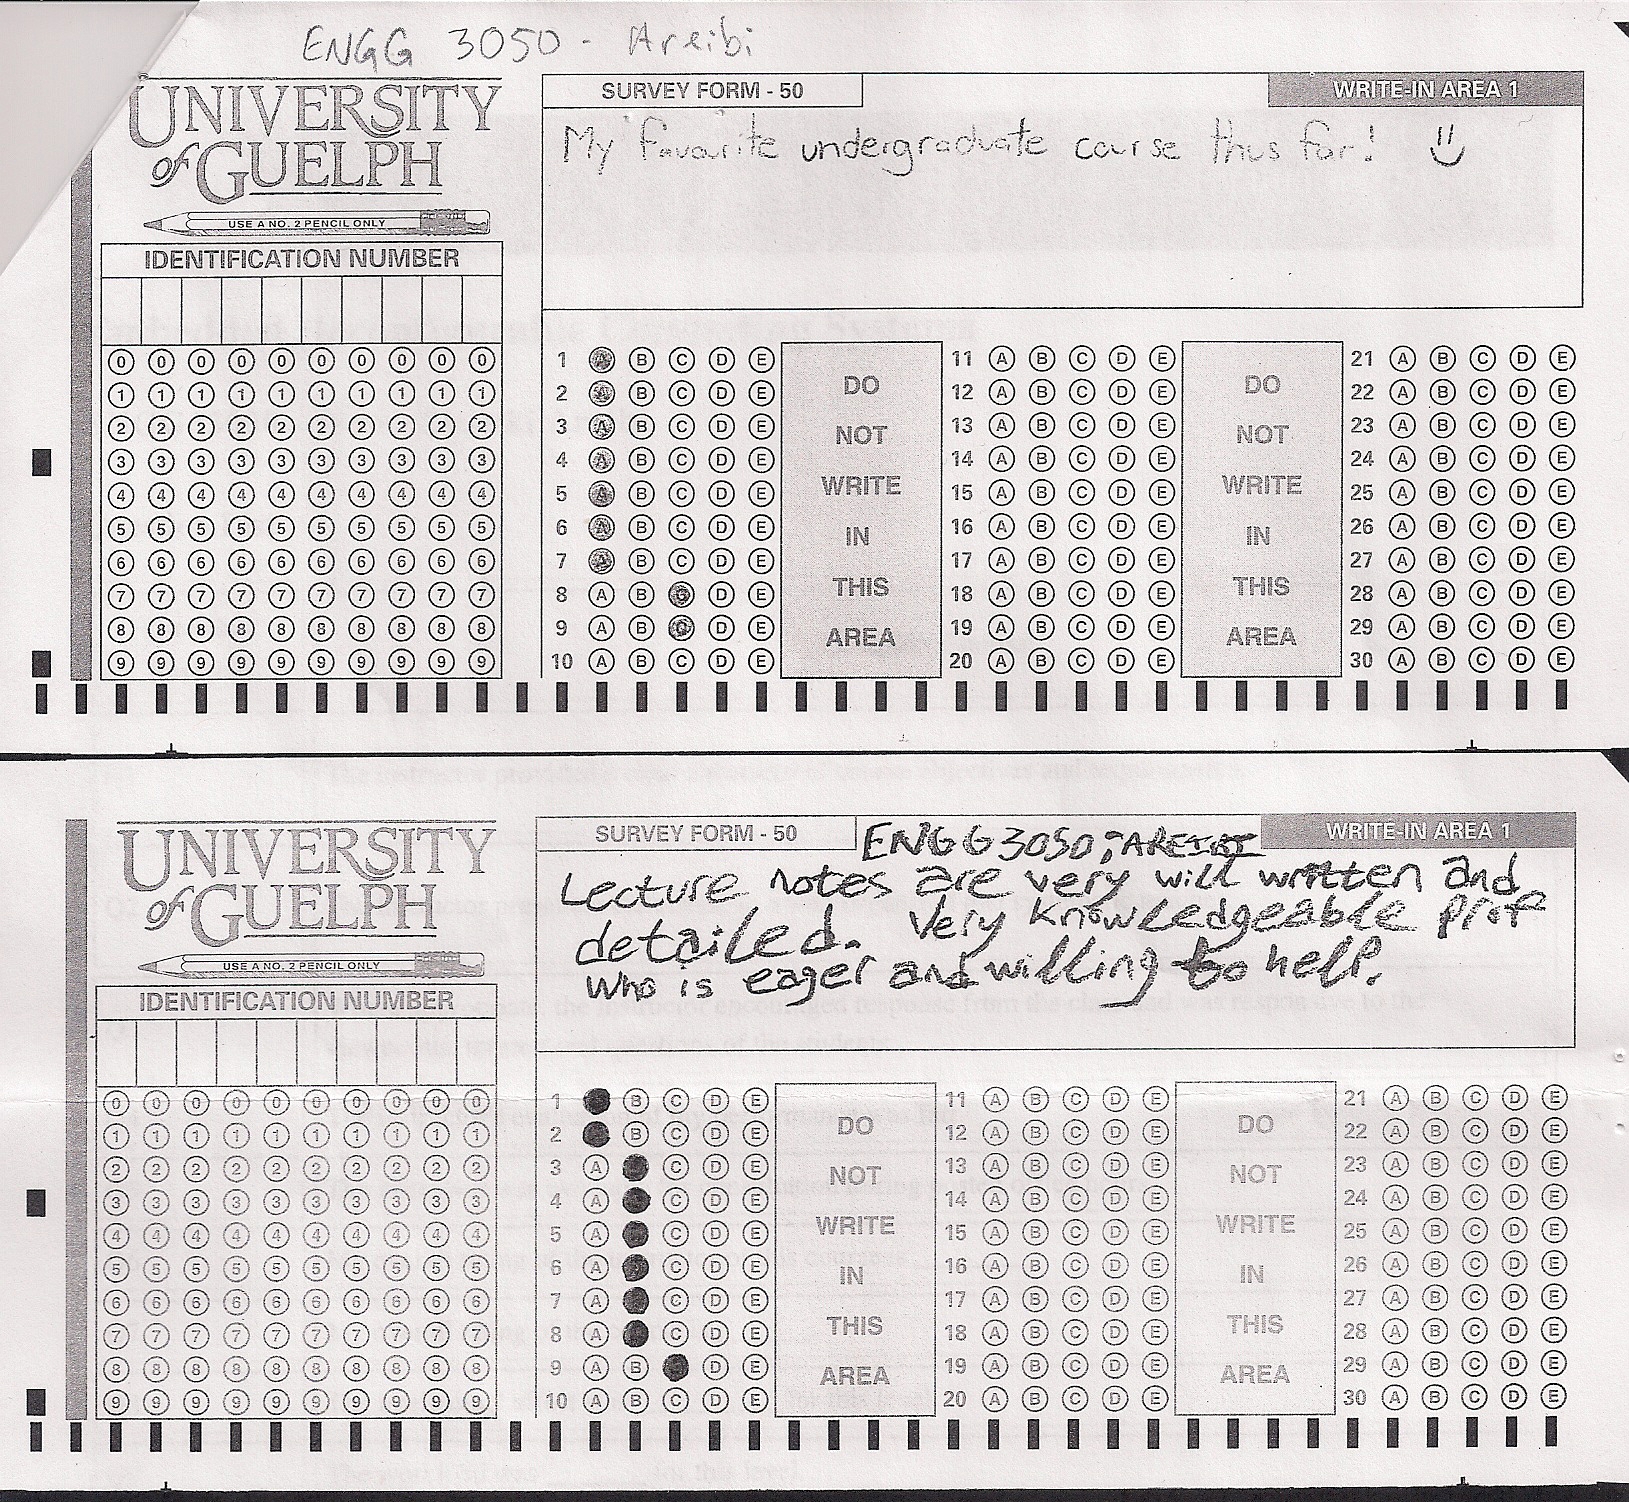 ENGG 3050 - Areibi
UNIVERSITY
of GUELPH
USE A NO. 2 PENCIL ONLY
IDENTIFICATION NUMBER
0 0 0 0 0 0 0 0 0 0
1 1 1 1 1 1 1 1 1 1
2 2 2 2 2 2 2 2 2 2
3 3 3 3 3 3 3 3 3 3
4 4 4 4 4 4 4 4 4 4
5 5 5 5 5 5 5 5 5 5
6 6 6 6 6 6 6 6 6 6
7 7 7 7 7 7 7 7 7 7
8 8 8 8 8 8 8 8 8 8
9 9 9 9 9 9 9 9 9 9
SURVEY FORM - 50
WRITE-IN AREA 1
My favourite undergraduate course thus far!
1 A B C D E
2 A B C D E
3 A B C D E
4 A B C D E
5 A B C D E
6 A B C D E
7 A B C D E
8 A B C D E
9 A B C D E
10 A B C D E
DO
NOT
WRITE
IN
THIS
AREA
11 A B C D E
12 A B C D E
13 A B C D E
14 A B C D E
15 A B C D E
16 A B C D E
17 A B C D E
18 A B C D E
19 A B C D E
20 A B C D E
DO
NOT
WRITE
IN
THIS
AREA
21 A B C D E
22 A B C D E
23 A B C D E
24 A B C D E
25 A B C D E
26 A B C D E
27 A B C D E
28 A B C D E
29 A B C D E
30 A B C D E
UNIVERSITY
of GUELPH
USE A NO. 2 PENCIL ONLY
IDENTIFICATION NUMBER
0 0 0 0 0 0 0 0 0 0
1 1 1 1 1 1 1 1 1 1
2 2 2 2 2 2 2 2 2 2
3 3 3 3 3 3 3 3 3 3
4 4 4 4 4 4 4 4 4 4
5 5 5 5 5 5 5 5 5 5
6 6 6 6 6 6 6 6 6 6
7 7 7 7 7 7 7 7 7 7
8 8 8 8 8 8 8 8 8 8
9 9 9 9 9 9 9 9 9 9
SURVEY FORM - 50
ENGG3050; AREIBI
WRITE-IN AREA 1
Lecture notes are very will written and
detailed. Very knowledgeable prof
who is eager and willing to help.
1 B C D E
2 B C D E
3 A C D E
4 A C D E
5 A C D E
6 A C D E
7 A C D E
8 A C D E
9 A B D E
10 A B C D E
DO
NOT
WRITE
IN
THIS
AREA
11 A B C D E
12 A B C D E
13 A B C D E
14 A B C D E
15 A B C D E
16 A B C D E
17 A B C D E
18 A B C D E
19 A B C D E
20 A B C D E
DO
NOT
WRITE
IN
THIS
AREA
21 A B C D E
22 A B C D E
23 A B C D E
24 A B C D E
25 A B C D E
26 A B C D E
27 A B C D E
28 A B C D E
29 A B C D E
30 A B C D E